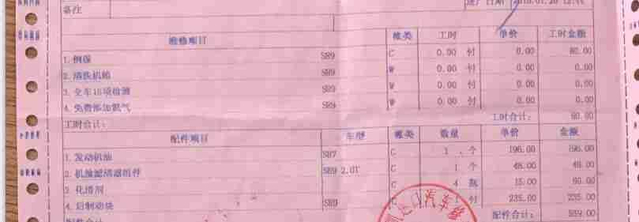 备注 进厂日期 2018.01.20
维修项目 帐类 工时 单价 工时金额
1. 例保 SH9 C 0.00 付 0.00 80.00
2. 清洗机舱 SH9 W 0.00 付 0.00 0.00
3. 全车18项检测 SH9 W 0.00 付 0.00 0.00
4. 免费添加氮气 SH9 W 0.00 付 0.00 0.00
工时合计: 工时合计: 80.00
配件项目 车型 帐类 数量 单价 金额
1. 发动机油 SH7 C 1 个 196.00 196.00
2. 机油滤清器组件 SH9 2.0T C 1 个 48.00 48.00
3. 化清剂 C 4 瓶 15.00 60.00
4. 后制动块 SH9 C 付 235.00 235.00
配件合计: 配件合计: 539.00
门汽车